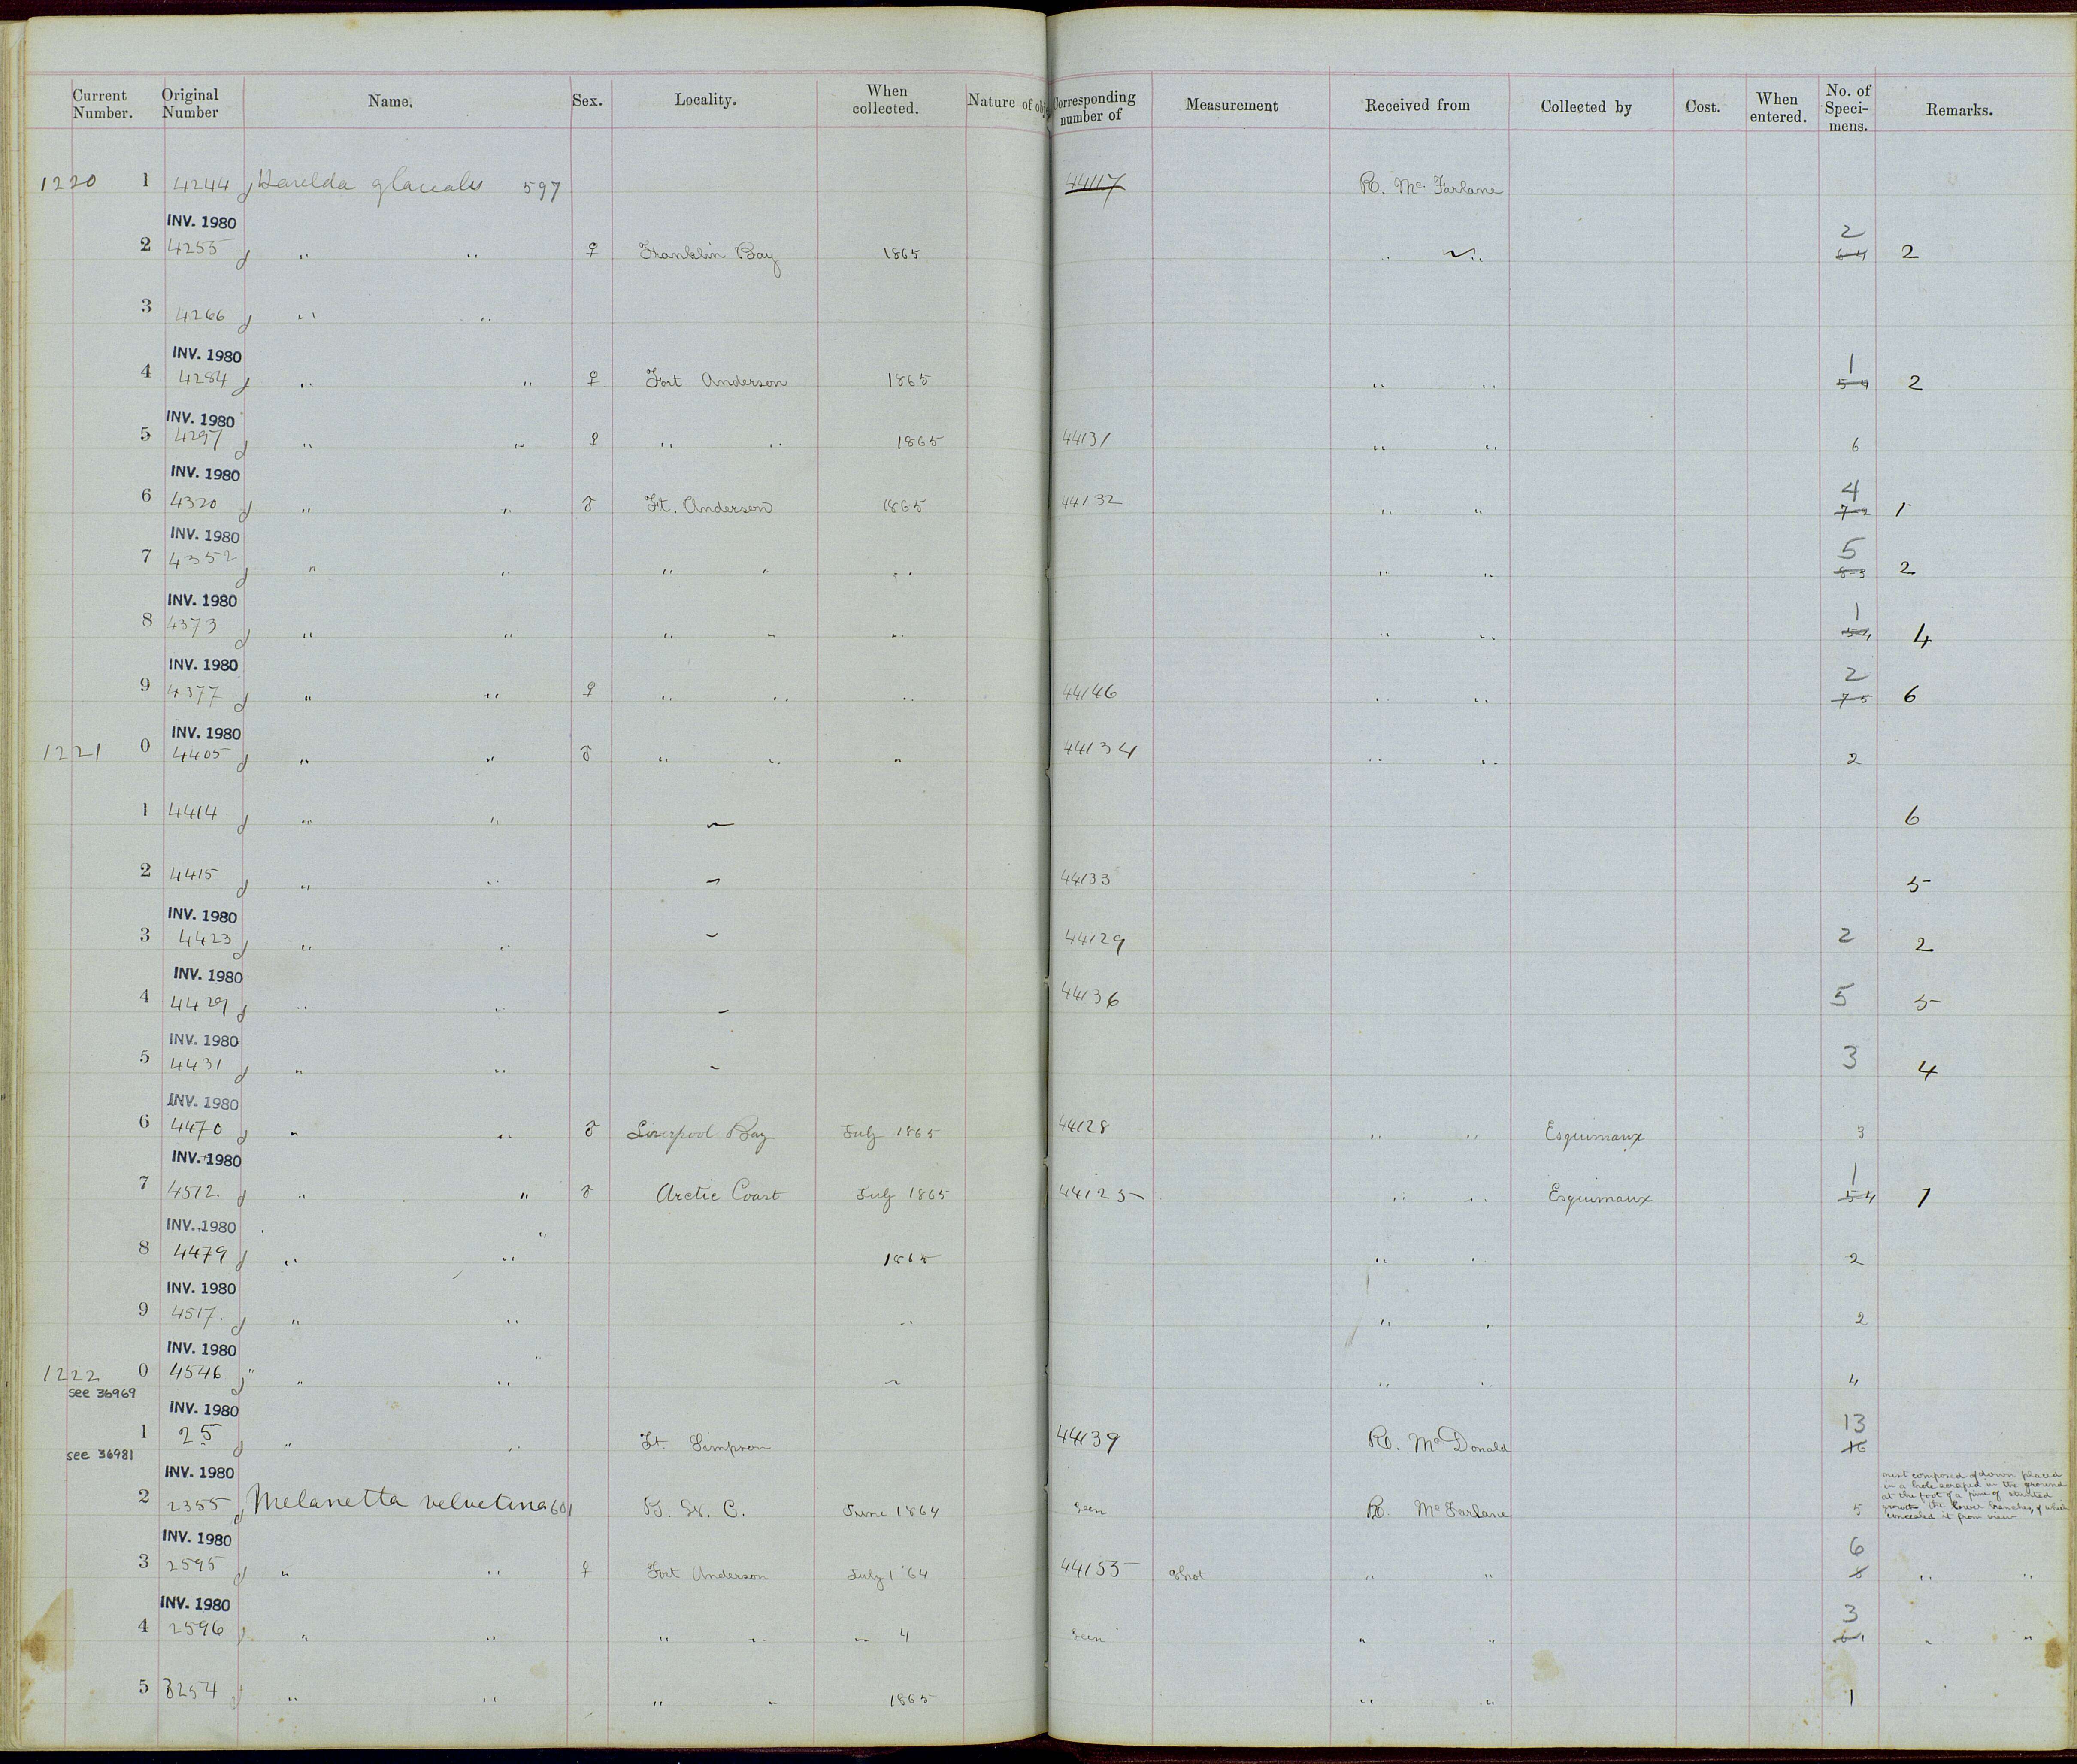 Current Number. Original Number Name. Sex. Locality. When collected. Nature of obje Corresponding number of Measurement Received from Collected by Cost. When entered. No. of Specimens. Remarks.
1220 1 4244 glacialis 597 44117 R. McFarlane
INV. 1980
2 4255 " " ♀ Franklin Bay 1865 " " 2 6-4 2
3 4266 " "
INV. 1980
4 4284 " " ♀ Fort Anderson 1865 " " 1 5-4 2
INV. 1980
5 4297 " " ♀ " " 1865 44131 " " 6
INV. 1980
6 4320 " " ♂ Ft. Anderson 1865 44132 " " 4 1
INV. 1980
7 4352 " " " " " " " 5 8-3 2
INV. 1980
8 4373 " " " " " " " 1 4
INV. 1980
9 4377 " " ♀ " " " 44146 " " 2 7-5 6
INV. 1980
1221 0 4405 " " ♂ " " " 44134 " " 2
1 4414 " " 6
2 4415 " " 44133 5
INV. 1980
3 4423 " " 44129 2 2
INV. 1980
4 4429 " " 44136 5 5
INV. 1980
5 4431 " " 3 4
INV. 1980
6 4470 " " ♂ Liverpool Bay July 1865 44128 " " Esquimaux 3
INV. 1980
7 4512. " " ♂ Arctic Coast July 1865 44125 " " Esquimaux 1 5-4 1
INV. 1980
8 4479 " " 1865 " " 2
INV. 1980
9 4517. " " " " " 2
INV. 1980
1222 0 4546 " " " " 4
see 36969
INV. 1980
1 25 " " Ft. Simpson 44139 R. McDonald 13 16
see 36981
INV. 1980
2 2355 Melanetta velvetina 601 June 1864 Seen R. McFarlane 5 nest composed of down placed
in a hole scraped in the ground
at the foot of a pine of stunted
growth the lower branches of which
concealed it from view
INV. 1980
3 2595 " " ♀ Fort Anderson July 1 '64 44155 Shot " " 6 8 " "
INV. 1980
4 2596 " " " " " 4 Seen " " 3 " "
5 3254 " " " " 1865 " " 1